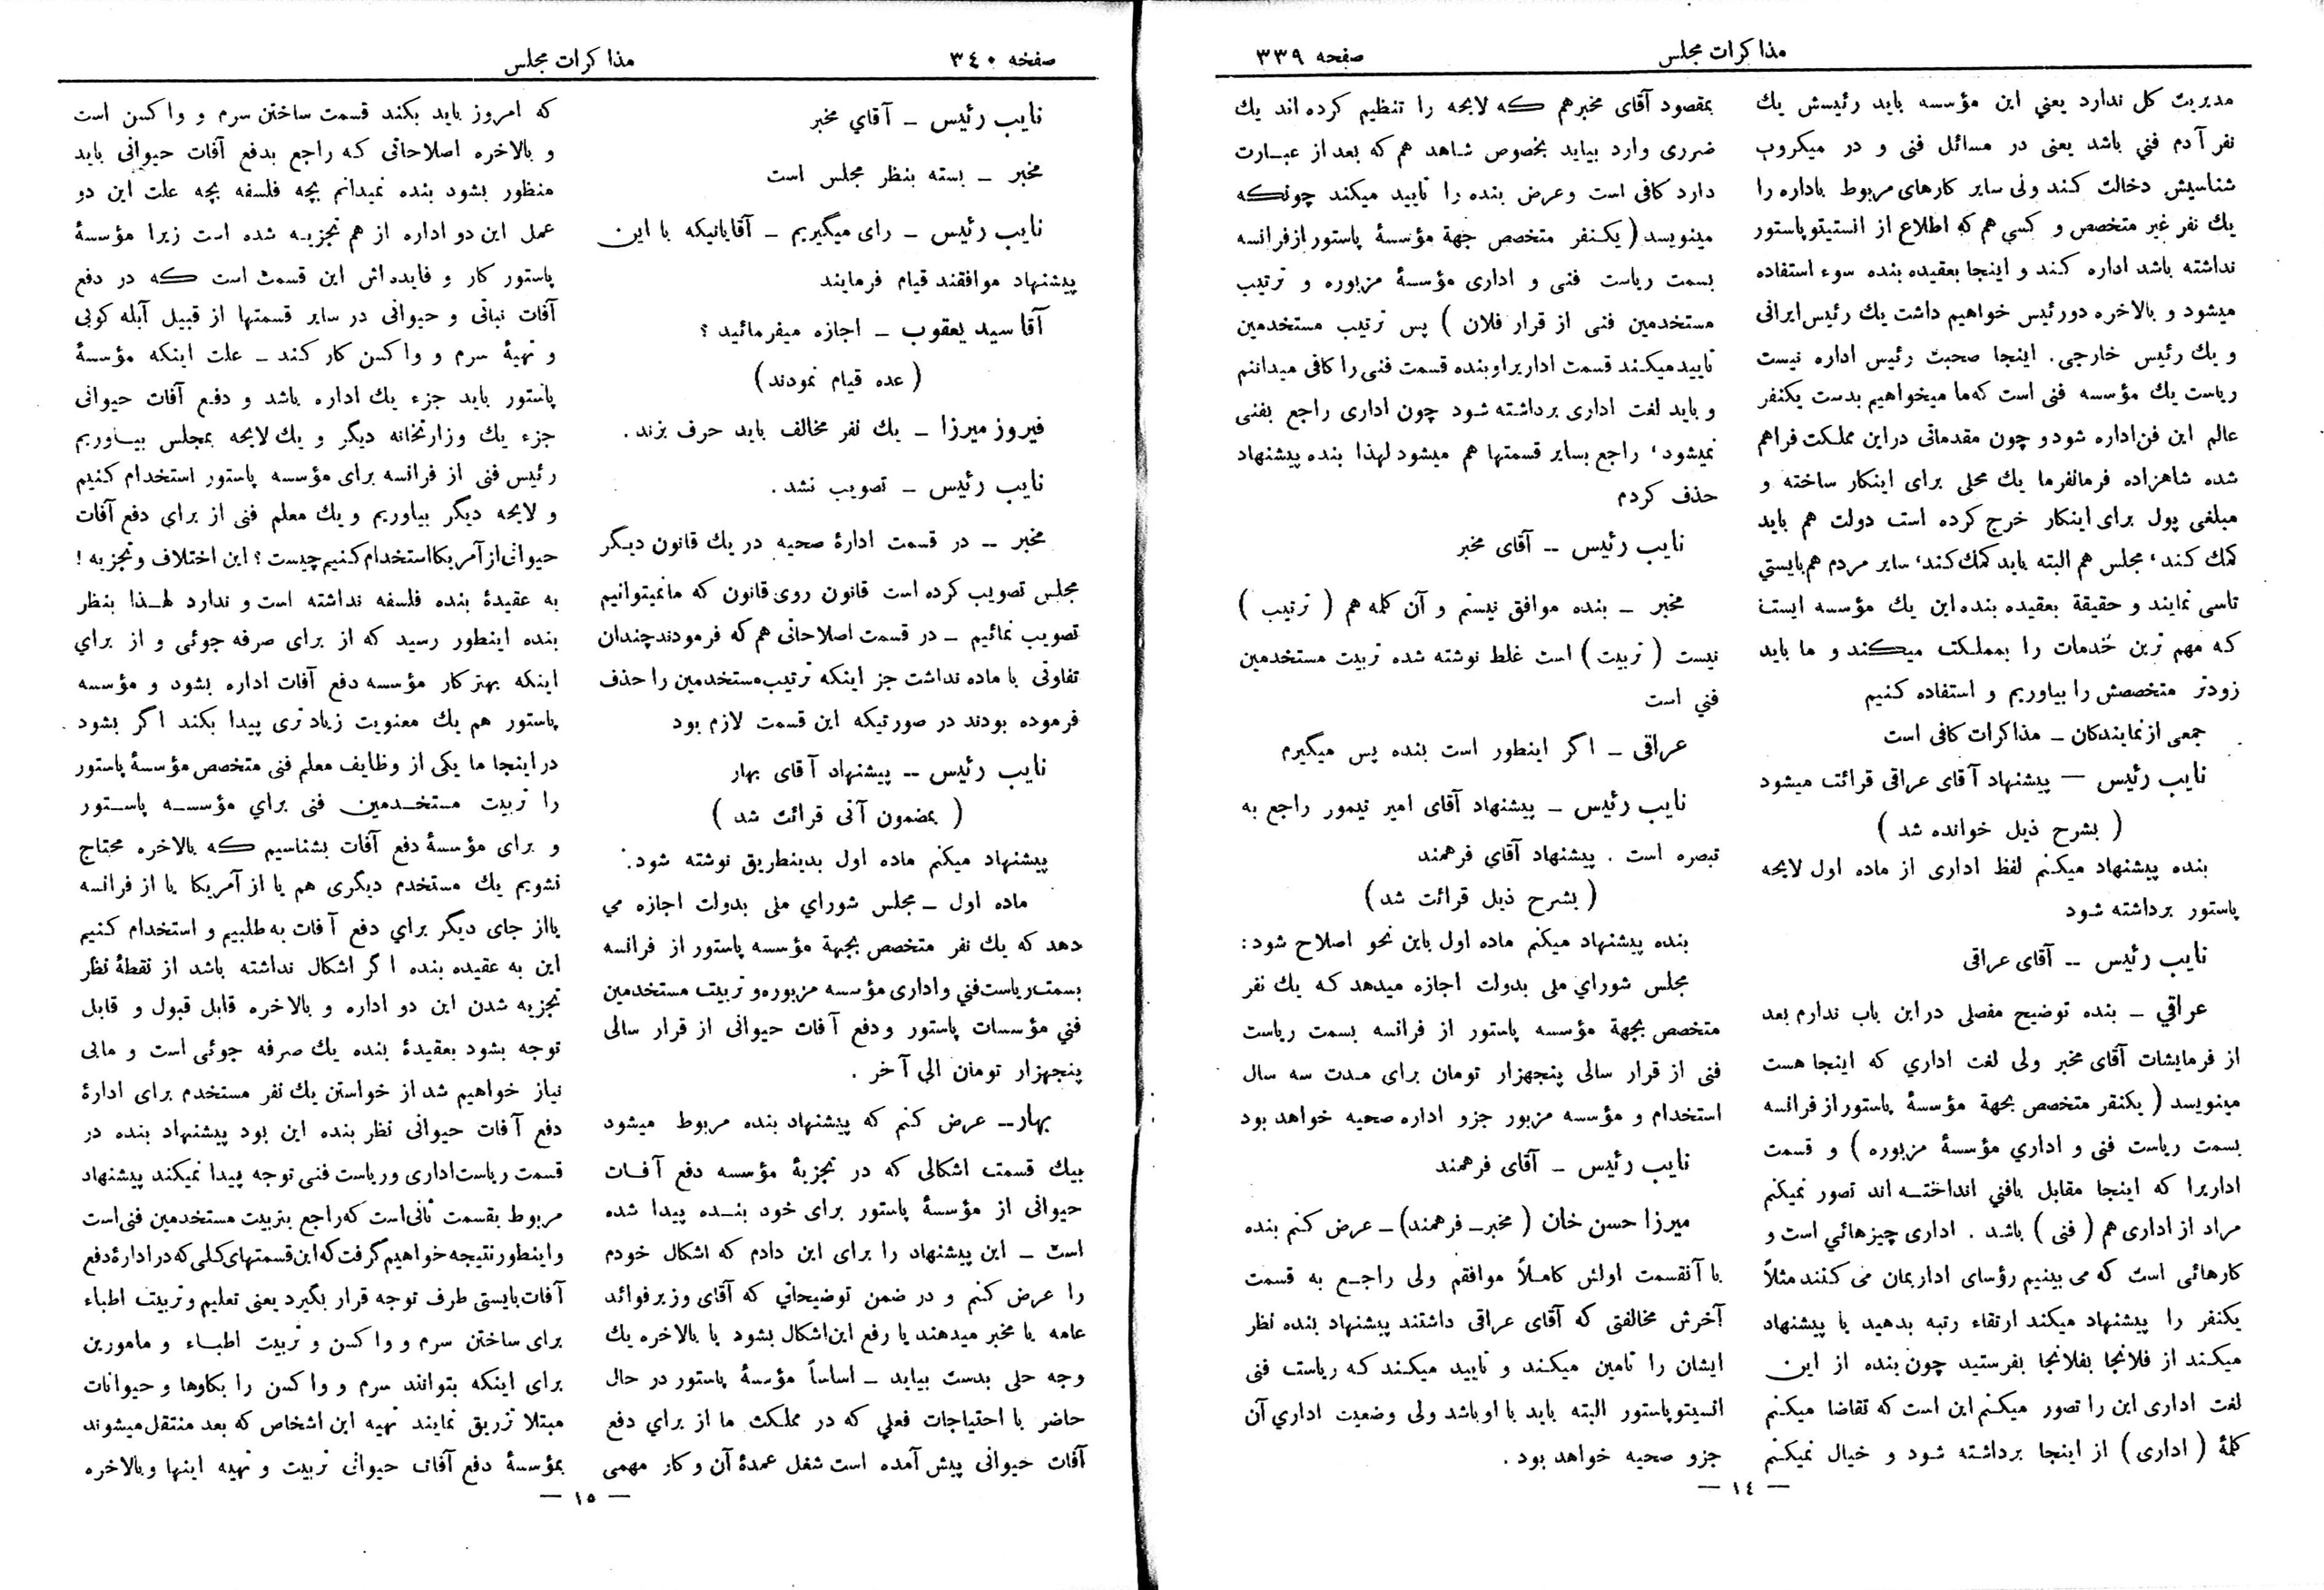 مذاکرات مجلس
صفحه ۳۳۹
مدیریت کل ندارد یعني این مؤسسه باید رئیسش یك
نفر آدم فني باشد یعنی در مسائل فنی و در میکروب
شناسیش دخالت کند ولی سایر کارهای مربوط باداره را
یك نفر غیر متخصص و کسي هم که اطلاع از انستیتو پاستور
نداشته باشد اداره کند و اینجا بعقیده بنده سوء استفاده
میشود و بالاخره دو رئیس خواهیم داشت یك رئیس ایرانی
و یك رئیس خارجی. اینجا صحبت رئیس اداره نیست
ریاست یك مؤسسه فنی است که ما میخواهیم بدست یکنفر
عالم این فن اداره شود و چون مقدماتی در این مملکت فراهم
شده شاهزاده فرمانفرما یك محلی برای اینکار ساخته و
مبلغی پول برای اینکار خرج کرده است دولت هم باید
کمك کند، مجلس هم البته باید کمك کند، سایر مردم هم بایستي
تاسی نمایند و حقیقة بعقیده بنده این یك مؤسسه ایست
که مهم ترین خدمات را بمملکت میکند و ما باید
زودتر متخصصش را بیاوریم و استفاده کنیم
جمعی از نمایندکان ــ مذاکرات کافی است
نایب رئیس — پیشنهاد آقای عراقی قرائت میشود
( بشرح ذیل خوانده شد )
بنده پیشنهاد میکنم لفظ اداری از ماده اول لایحه
پاستور برداشته شود
نایب رئیس -- آقای عراقی
عراقي ــ بنده توضیح مفصلی در این باب ندارم بعد
از فرمایشات آقای مخبر ولی لغت اداري که اینجا هست
مینویسد ( یکنفر متخصص بجهة مؤسسهٔ پاستور از فرانسه
بسمت ریاست فنی و اداري مؤسسهٔ مزبوره ) و قسمت
اداریرا که اینجا مقابل بافني انداخته اند تصور نمیکنم
مراد از اداری هم ( فنی ) باشد . اداری چیزهائي است و
کارهائی است که می بینیم رؤسای اداریمان می کنند مثلاً
یکنفر را پیشنهاد میکند ارتقاء رتبه بدهید یا پیشنهاد
میکند از فلانجا بفلانجا بفرستید چون بنده از این
لغت اداری این را تصور میکنم این است که تقاضا میکنم
کلمهٔ ( اداری ) از اینجا برداشته شود و خیال نمیکنم
بمقصود آقای مخبر هم که لایحه را تنظیم کرده اند یك
ضرری وارد بیاید بخصوص شاهد هم که بعد از عبارت
دارد کافی است و عرض بنده را تایید میکند چونکه
مینویسد ( یکنفر متخصص جهة مؤسسهٔ پاستور از فرانسه
بسمت ریاست فنی و اداری مؤسسهٔ مزبوره و ترتیب
مستخدمین فنی از قرار فلان ) پس ترتیب مستخدمین
تایید میکند قسمت اداریرا و بنده قسمت فنی را کافی میدانم
و باید لغت اداری برداشته شود چون اداری راجع بفنی
نمیشود، راجع بسایر قسمتها هم میشود لهذا بنده پیشنهاد
حذف کردم
نایب رئیس -- آقای مخبر
مخبر ــ بنده موافق نیستم و آن کله هم ( ترتیب )
نیست ( تربیت ) است غلط نوشته شده تربیت مستخدمین
فني است
عراقی ــ اگر اینطور است بنده پس میگیرم
نایب رئیس ــ پیشنهاد آقای امیر تیمور راجع به
تبصره است . پیشنهاد آقاي فرهمند
( بشرح ذیل قرائت شد )
بنده پیشنهاد میکنم ماده اول باین نحو اصلاح شود:
مجلس شوراي ملی بدولت اجازه میدهد که یك نفر
متخصص بجهة مؤسسه پاستور از فرانسه بسمت ریاست
فنی از قرار سالی پنجهزار تومان برای مدت سه سال
استخدام و مؤسسه مزبور جزو اداره صحیه خواهد بود
نایب رئیس ــ آقای فرهمند
میرزا حسن خان ( مخبر ــ فرهمند ) ــ عرض کنم بنده
با آنقسمت اولش کاملاً موافقم ولی راجع به قسمت
آخرش مخالفتی که آقای عراقی داشتند پیشنهاد بنده نظر
ایشان را تامین میکند و تایید میکند که ریاست فنی
انسیتو پاستور البته باید با او باشد ولی وضعیت اداري آن
جزو صحیه خواهد بود .
— ١٤ —
مذاکرات مجلس
صفحه ٣٤٠
نایب رئیس ــ آقاي مخبر
مخبر ــ بسته بنظر مجلس است
نایب رئیس ــ رای میگیریم ــ آقایانیکه با این
پیشنهاد موافقند قیام فرمایند
آقا سید یعقوب ــ اجازه میفرمائید ؟
( عده قیام نمودند )
فیروز میرزا ــ یك نفر مخالف باید حرف بزند .
نایب رئیس ــ تصویب نشد .
مخبر -- در قسمت ادارهٔ صحیه در یك قانون دیگر
مجلس تصویب کرده است قانون روی قانون که ما نمیتوانیم
تصویب نمائیم ــ در قسمت اصلاحاتی هم که فرمودند چندان
تفاوتی با ماده نداشت جز اینکه ترتیب مستخدمین را حذف
فرموده بودند در صورتیکه این قسمت لازم بود
نایب رئیس -- پیشنهاد آقای بهار
( بمضمون آتی قرائت شد )
پیشنهاد میکنم ماده اول بدینطریق نوشته شود:
ماده اول ــ مجلس شوراي ملی بدولت اجازه می
دهد که یك نفر متخصص بجهة مؤسسه پاستور از فرانسه
بسمت ریاست فني و اداری مؤسسه مزبوره و تربیت مستخدمین
فني مؤسسات پاستور و دفع آفات حیوانی از قرار سالی
پنجهزار تومان الي آخر .
بهار -- عرض کنم که پیشنهاد بنده مربوط میشود
بیك قسمت اشکالی که در تجزبهٔ مؤسسه دفع آفات
حیوانی از مؤسسهٔ پاستور برای خود بنده پیدا شده
است ــ این پیشنهاد را برای این دادم که اشکال خودم
را عرض کنم و در ضمن توضیحاتي که آقای وزیر فوائد
عامه یا مخبر میدهند یا رفع این اشکال بشود یا بالاخره یك
وجه حلی بدست بیاید ــ اساساً مؤسسهٔ پاستور در حال
حاضر با احتیاجات فعلي که در مملکت ما از براي دفع
آفات حیوانی پیش آمده است شغل عمدهٔ آن و کار مهمی
که امروز باید بکند قسمت ساختن سرم و واکسن است
و بالاخره اصلاحاتی که راجع بدفع آفات حیوانی باید
منظور بشود بنده نمیدانم بچه فلسفه بچه علت این دو
عمل این دو اداره از هم تجزیه شده است زیرا مؤسسهٔ
پاستور کار و فایده اش این قسمت است که در دفع
آفات نباتی و حیوانی در سایر قسمتها از قبیل آبله کوبی
و تهیهٔ سرم و واکسن کار کند ــ علت اینکه مؤسسهٔ
پاستور باید جزء یك اداره باشد و دفع آفات حیوانی
جزء یك وزارتخانه دیگر و یك لایحه بمجلس بیاوریم
رئیس فنی از فرانسه برای مؤسسه پاستور استخدام کنیم
و لایحه دیگر بیاوریم و یك معلم فنی از براي دفع آفات
حیوانی از آمریکا استخدام کنیم چیست ؟ این اختلاف و تجزیه !
به عقیدهٔ بنده فلسفه نداشته است و ندارد لهذا بنظر
بنده اینطور رسید که از برای صرفه جوئی و از براي
اینکه بهتر کار مؤسسه دفع آفات اداره بشود و مؤسسه
پاستور هم یك معنویت زیادتری پیدا بکند اگر بشود
در اینجا ما یکی از وظایف معلم فنی متخصص مؤسسهٔ پاستور
را تربیت مستخدمین فنی براي مؤسسه پاستور
و برای مؤسسهٔ دفع آفات بشناسیم که بالاخره محتاج
نشویم یك مستخدم دیگری هم یا از آمریکا یا از فرانسه
یا از جای دیگر براي دفع آفات به طلبیم و استخدام کنیم
این به عقیده بنده اگر اشکال نداشته باشد از نقطهٔ نظر
تجزیه شدن این دو اداره و بالاخره قابل قبول و قابل
توجه بشود بعقیدهٔ بنده یك صرفه جوئی است و ما بی
نیاز خواهیم شد از خواستن یك نفر مستخدم برای ادارهٔ
دفع آفات حیوانی نظر بنده این بود پیشنهاد بنده در
قسمت ریاست اداری و ریاست فنی توجه پیدا نمیکند پیشنهاد
مربوط بقسمت ثانی است که راجع بتربیت مستخدمین فنی است
و اینطور نتیجه خواهیم گرفت که این قسمتهای کلی که در ادارهٔ دفع
آفات بایستی طرف توجه قرار بگیرد یعنی تعلیم و تربیت اطباء
برای ساختن سرم و واکسن و تربیت اطباء و مامورین
برای اینکه بتوانند سرم و واکسن را بکاوها و حیوانات
مبتلا تزریق نمایند تهیه این اشخاص که بعد منتقل میشوند
بمؤسسهٔ دفع آفات حیوانی تربیت و تهیه اینها و بالاخره
— ١٥ —